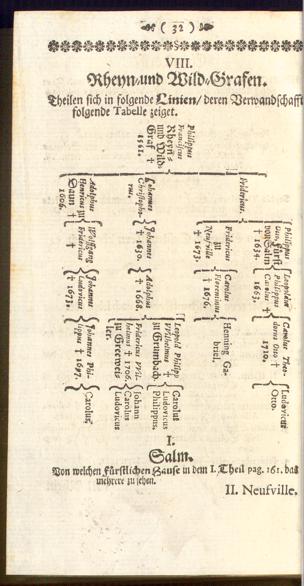 ( 32 )
VIII.
Rheyn- und Wild-Grafen.
Theilen sich in folgende Linien/ deren Verwandschafft
folgende Tabelle zeiget.
Philippus
Franciscus
Rheyn-
und Wild-
Graf †
1561.
Fridericus.
Johannes
Christopho-
rus.
Adolphus
Henricus zu
Daun †
1606.
Philippus
Otto, Fürst
von Salm
† 1634.
Fridericus
zu
Neufville
† 1673.
Johannes
† 1630.
Wolffgang
Fridericus
†
Leopoldus
Carolus †
1663.
Carolus
Florentinus
† 1676.
Adolphus
† 1668.
Johannes
Ludovicus
† 1673.
Carolus Theo-
dorus Otto †
1710.
Henning Ga-
briel.
Leopold Philipp
Wilhelmus †
zu Grumbach.
Fridericus Wil-
helmus † 1706.
zu Greeweis
ler.
Johannes Phi-
lippus † 1697.
Ludovicus
Otto.
Carolus
Ludovicus
Philippus.
Johann
Carolus
Ludovicus
Carolus.
I.
Salm.
Von welchen Fürstlichen Hause in dem I. Theil pag. 161. das
mehrere zu sehen.
II. Neufville.